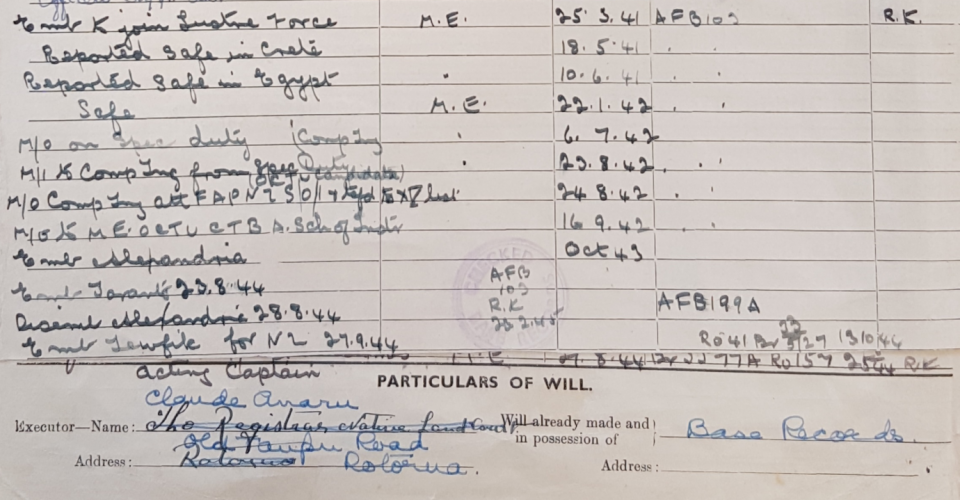 Emb K join Lustre Force M.E. 25.3.41 AFB103 R.K.
Reported Safe in Crete 18.5.41 " "
Reported Safe in Egypt " 10.6.41 " "
Safe M.E. 22.1.42 " "
M/O on Spec duty Comp Trg " 6.7.42
M/I K Comp Trg from Spec Duty " 23.8.42 " "
OCTU candidate)
M/O Comp Trg att 24.8.42 " "
M/O K M.E. OCTU CTBA. Sch of Instr 16.9.42 "
Emb Alexandria Oct 43
Emb Taranto 23.8.44 AFB 103 R.K 23.2.45 AFB199A
Disemb Alexandria 28.8.44
Emb Tewfik for NZ 27.9.44 RO 41 22 27 13/10/44
acting Captain M.E 27.8.44 77A RO157 R.K
CHECKED
PARTICULARS OF WILL.
Claude Anaru
Executor—Name: The Registrar Native Land Court Will already made and in possession of Base Records.
Old Taupo Road
Address: Rotorua Rotorua. Address: